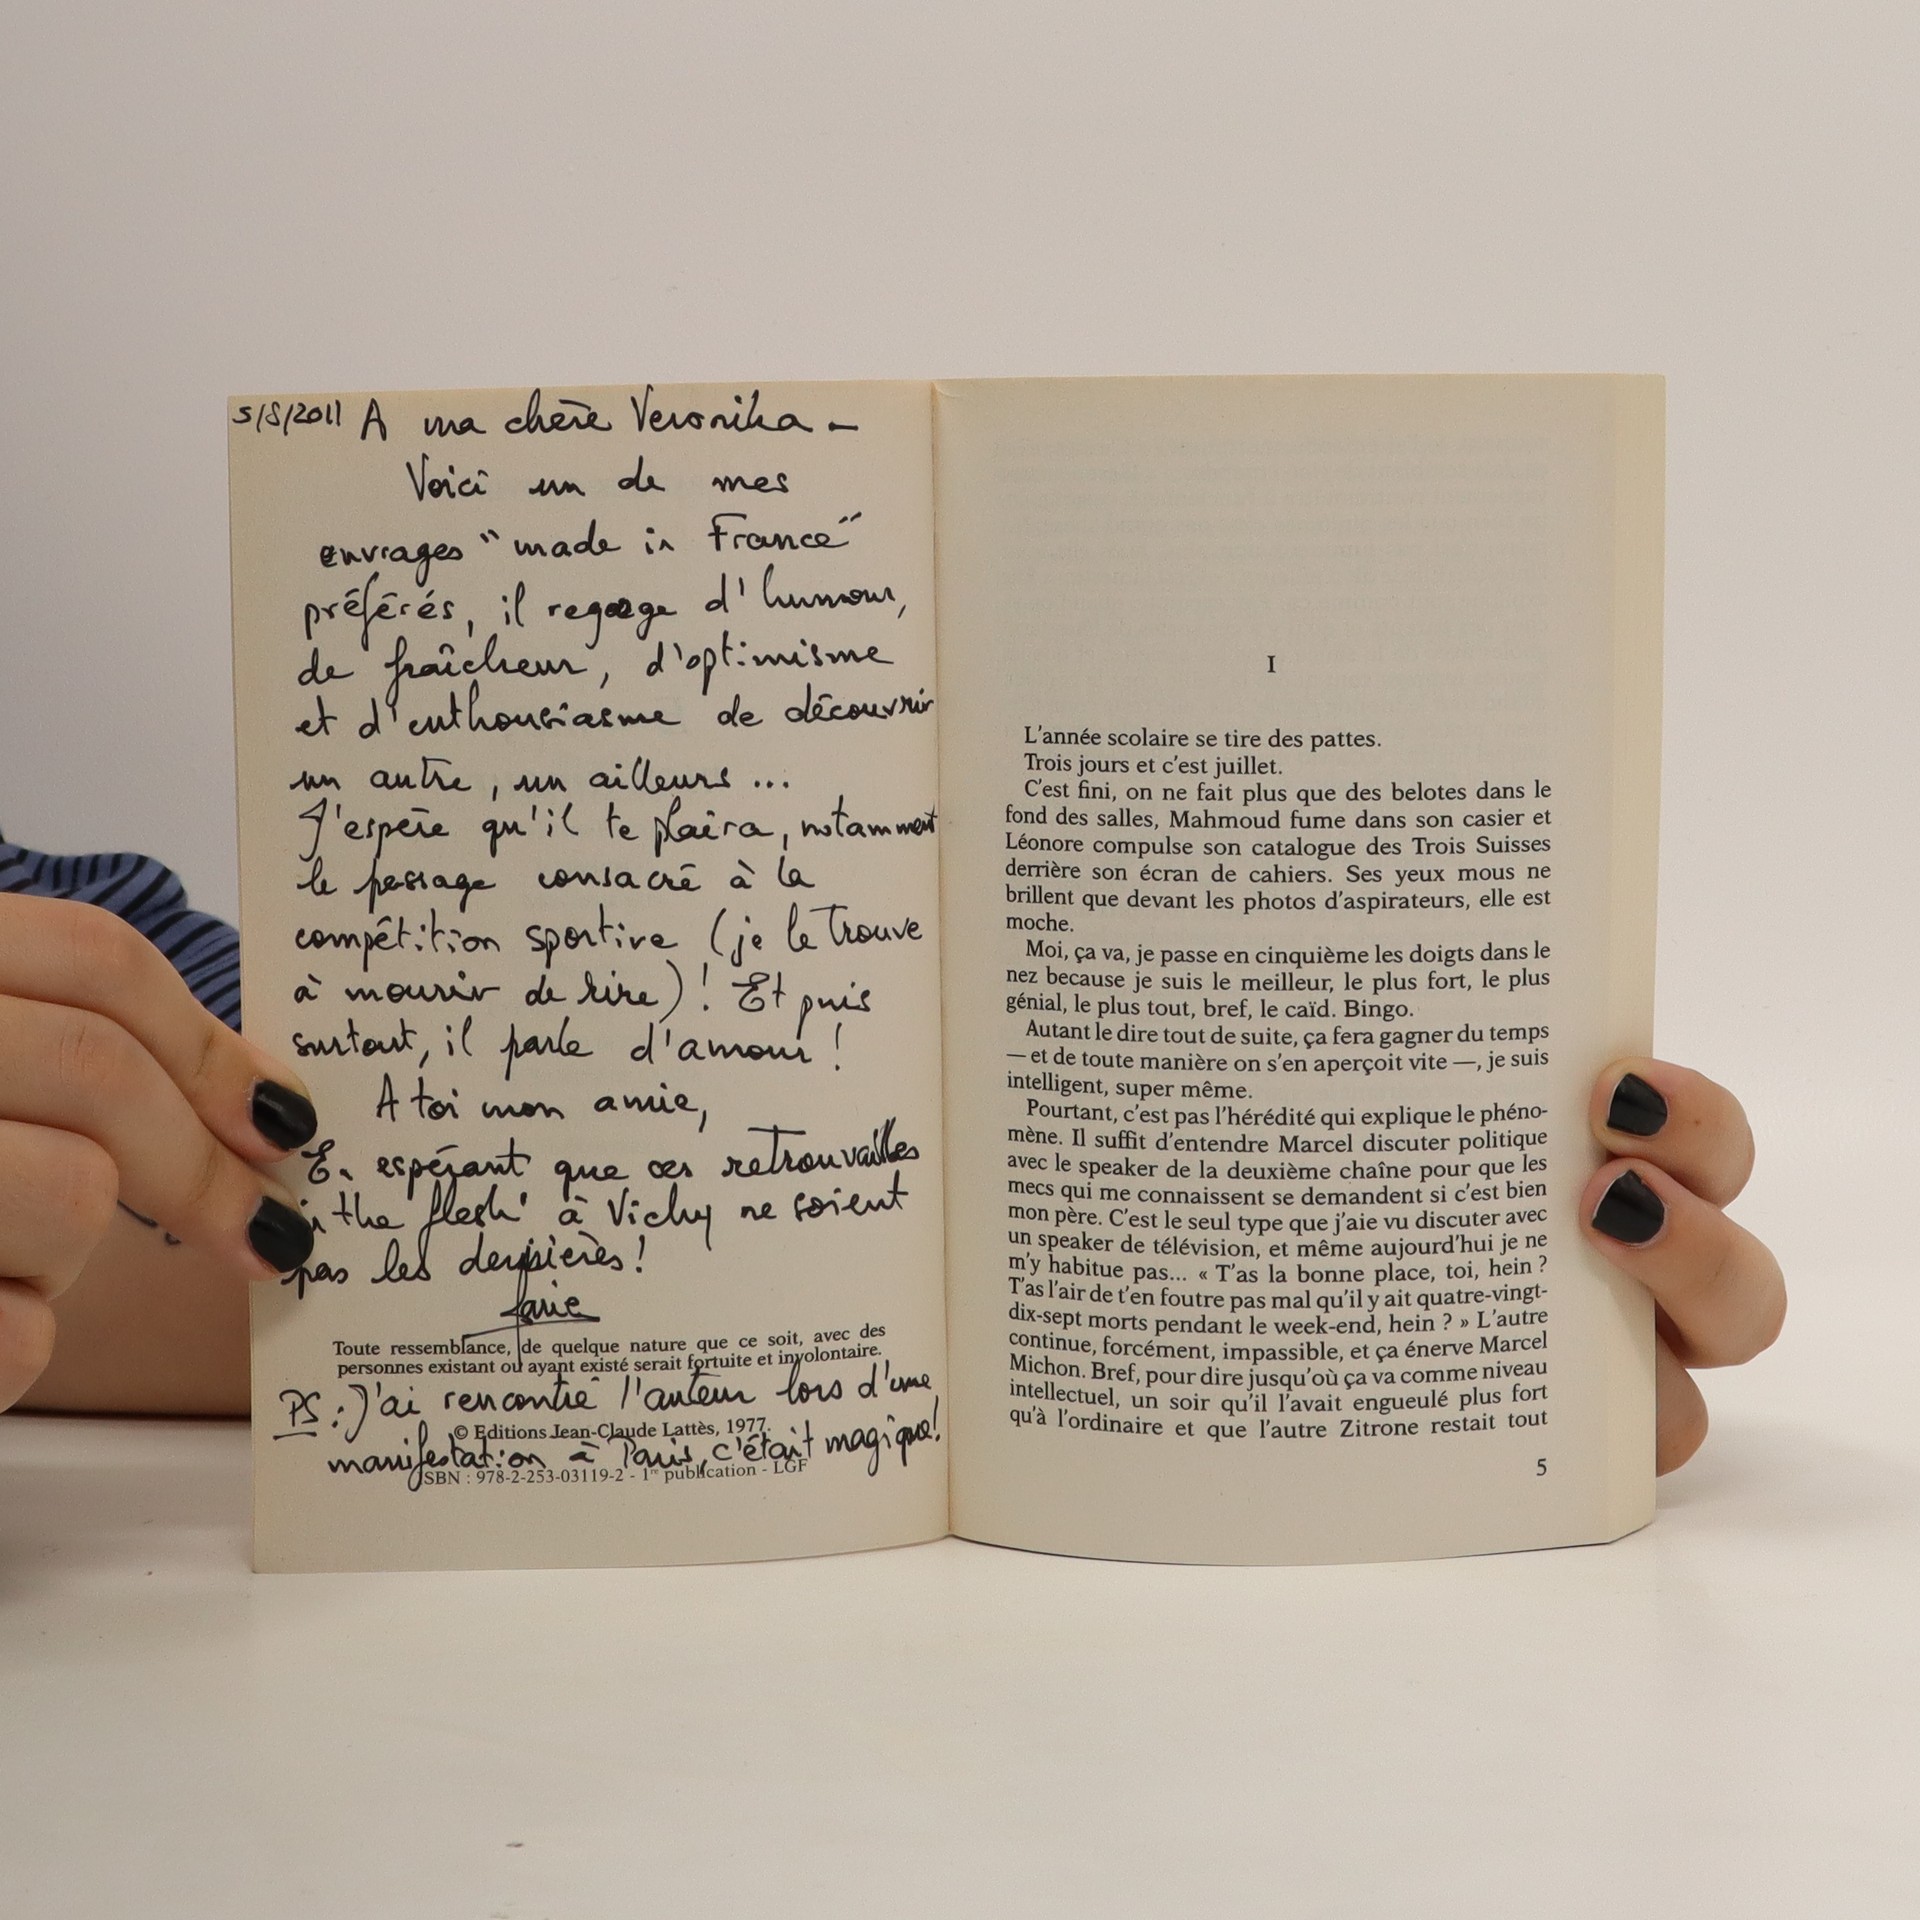 5/8/2011 A ma chère Veronika –
Voici un de mes
ouvrages "made in France"
préférés, il regorge d'humour,
de fraîcheur, d'optimisme
et d'enthousiasme de découvrir
un autre, un ailleurs ...
J'espère qu'il te plaira, notamment
le passage consacré à la
compétition sportive (je le trouve
à mourir de rire) ! Et puis
surtout, il parle d'amour !
A toi mon amie,
En espérant que ces retrouvailles
in the flesh' à Vichy ne soient
pas les dernières !
Toute ressemblance, de quelque nature que ce soit, avec des
personnes existant ou ayant existé serait fortuite et involontaire.
PS : J'ai rencontré l'auteur lors d'une
© Editions Jean-Claude Lattès, 1977.
manifestation à Paris, c'était magique !
ISBN : 978-2-253-03119-2 - 1re publication - LGF
I
L'année scolaire se tire des pattes.
Trois jours et c'est juillet.
C'est fini, on ne fait plus que des belotes dans le
fond des salles, Mahmoud fume dans son casier et
Léonore compulse son catalogue des Trois Suisses
derrière son écran de cahiers. Ses yeux mous ne
brillent que devant les photos d'aspirateurs, elle est
moche.
Moi, ça va, je passe en cinquième les doigts dans le
nez because je suis le meilleur, le plus fort, le plus
génial, le plus tout, bref, le caïd. Bingo.
Autant le dire tout de suite, ça fera gagner du temps
— et de toute manière on s'en aperçoit vite —, je suis
intelligent, super même.
Pourtant, c'est pas l'hérédité qui explique le phéno-
mène. Il suffit d'entendre Marcel discuter politique
avec le speaker de la deuxième chaîne pour que les
mecs qui me connaissent se demandent si c'est bien
mon père. C'est le seul type que j'aie vu discuter avec
un speaker de télévision, et même aujourd'hui je ne
m'y habitue pas... « T'as la bonne place, toi, hein ?
T'as l'air de t'en foutre pas mal qu'il y ait quatre-vingt-
dix-sept morts pendant le week-end, hein ? » L'autre
continue, forcément, impassible, et ça énerve Marcel
Michon. Bref, pour dire jusqu'où ça va comme niveau
intellectuel, un soir qu'il l'avait engueulé plus fort
qu'à l'ordinaire et que l'autre Zitrone restait tout
5